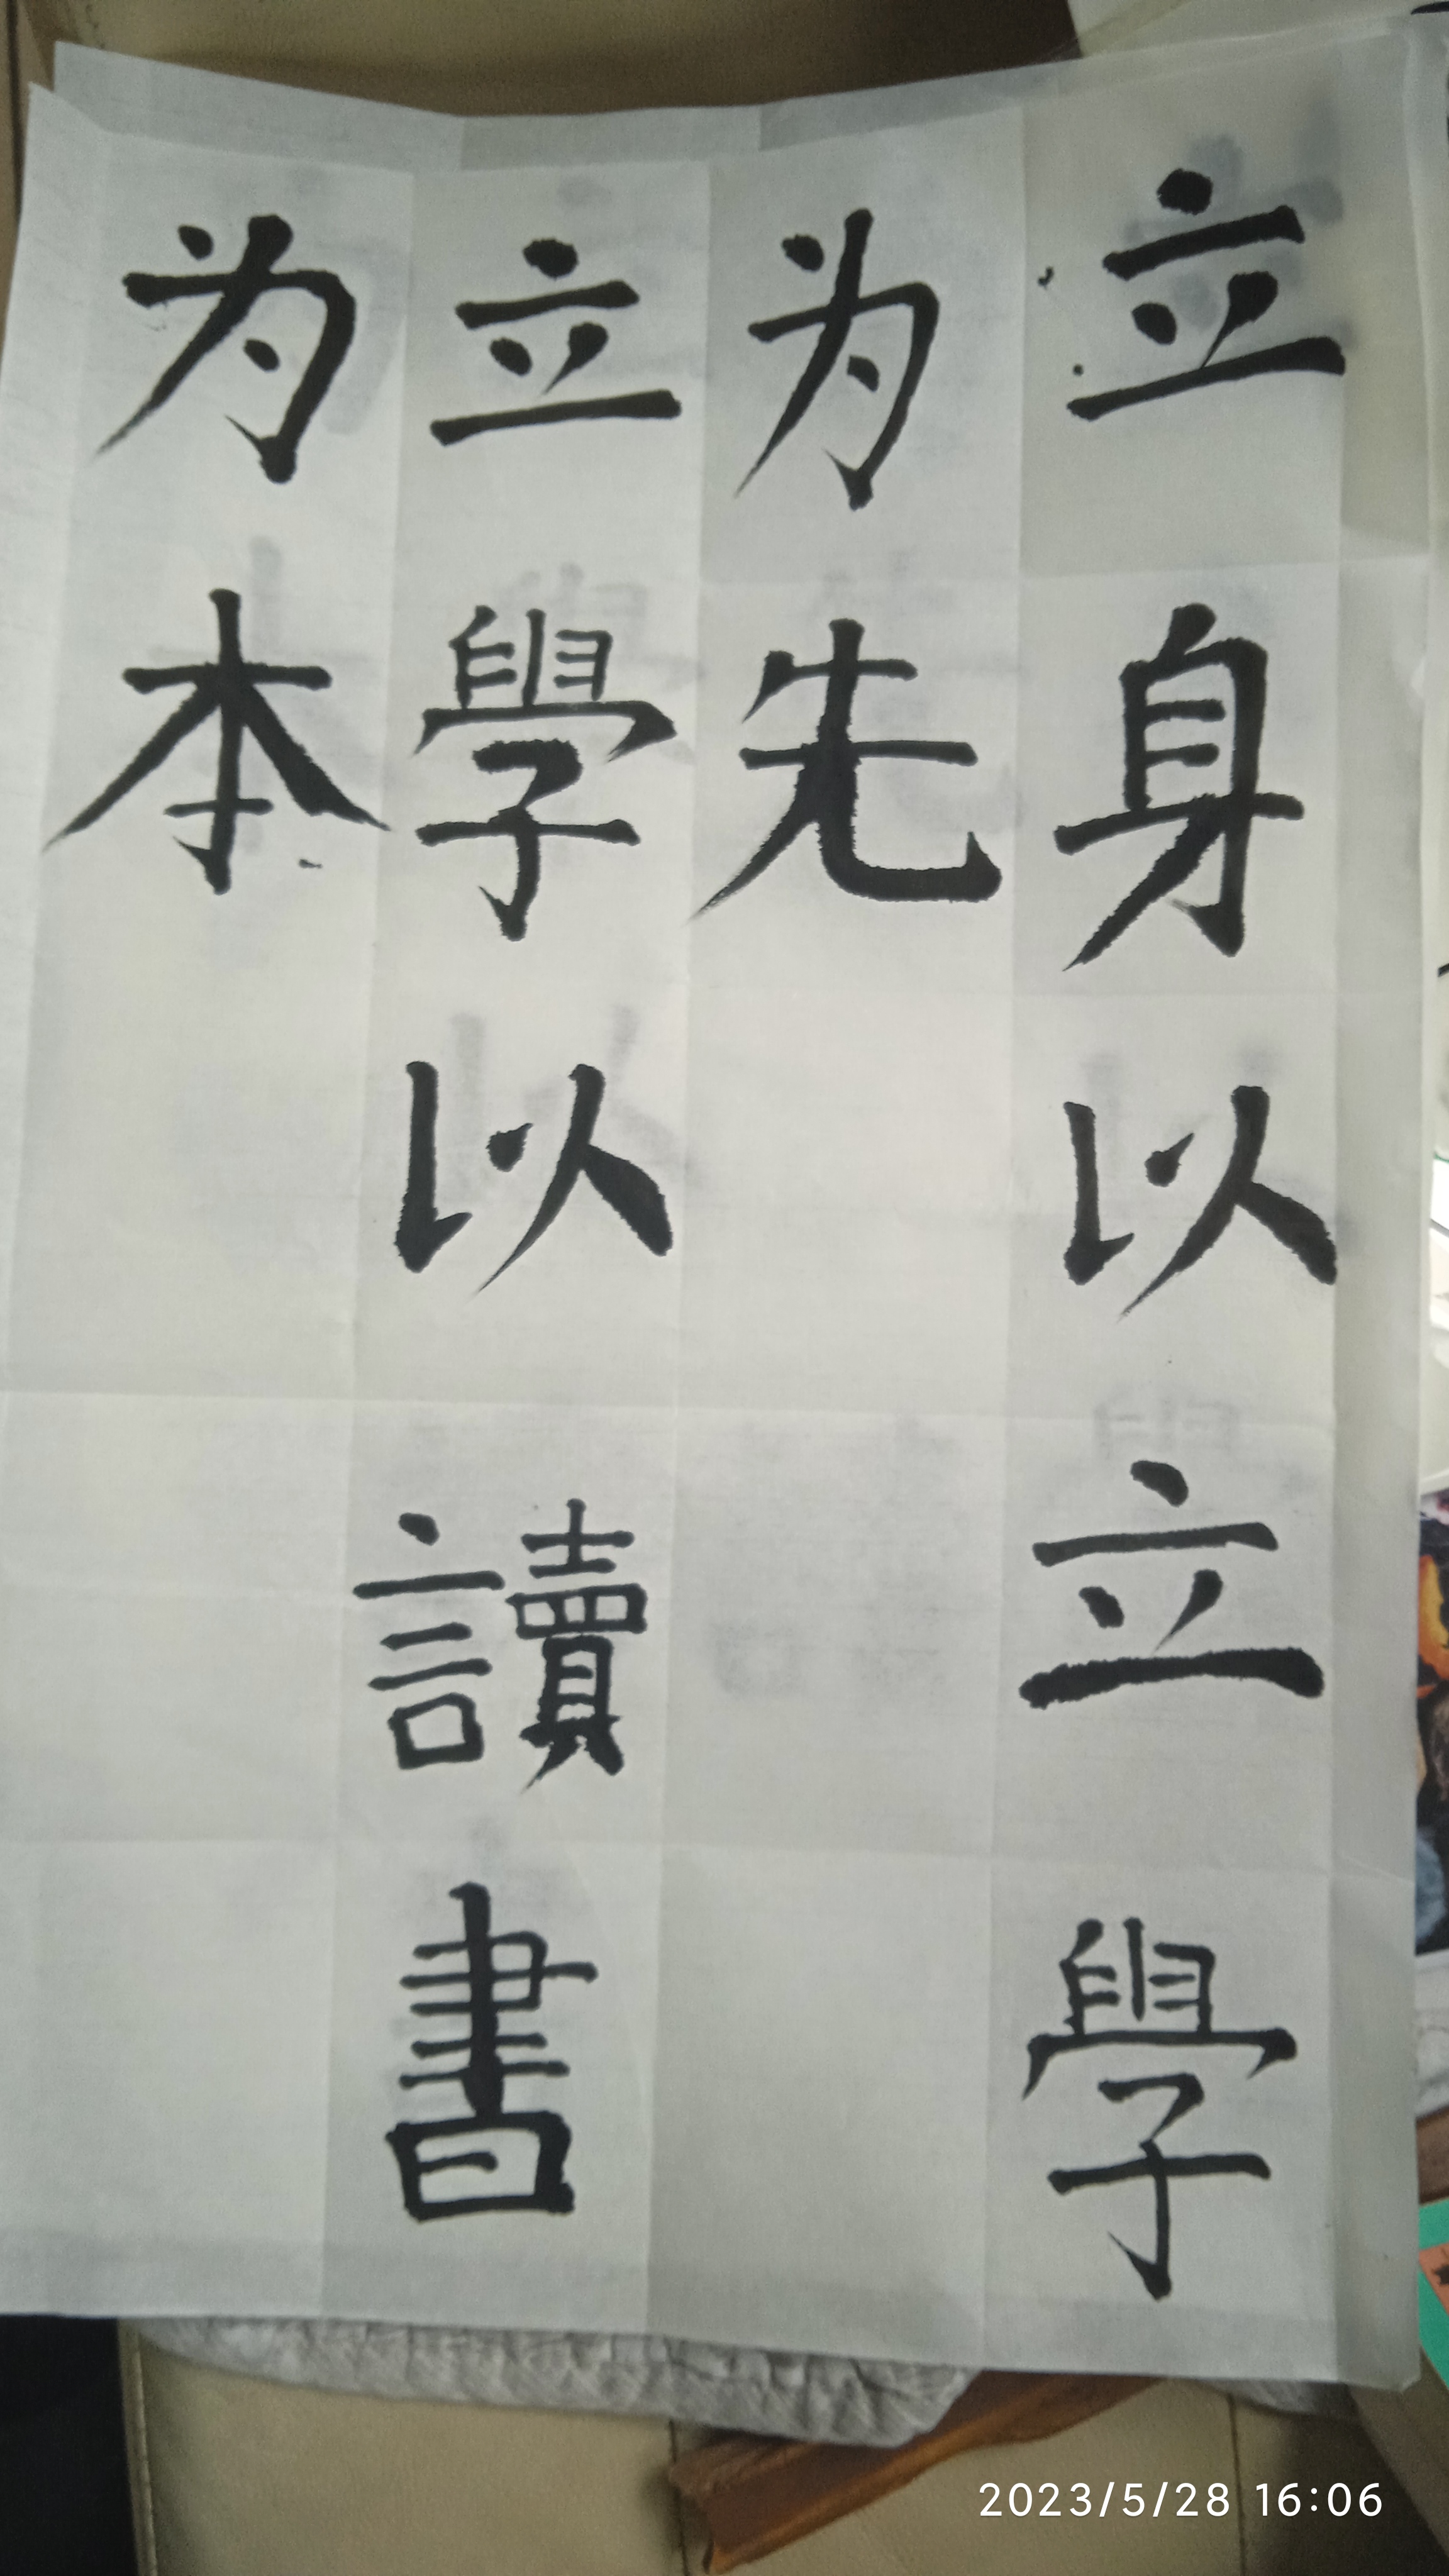 立身以立學
为先
立學以讀書
为本
2023/5/28 16:06